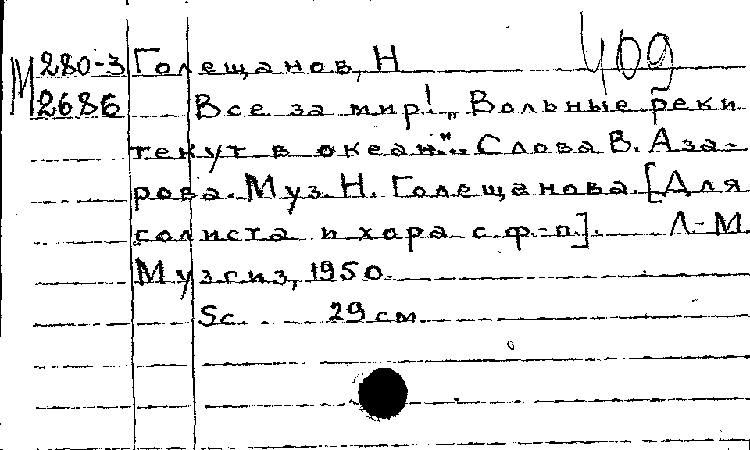 М 280-3 Голещанов, Н 409
2686 Все за мир! „Вольные реки
текут в океан." Слова В. Аза-
рова. Муз. Н. Голещанова. [Для
солиста и хора с ф-п]. Л-М
Музгиз, 1950.
5с. 29 см